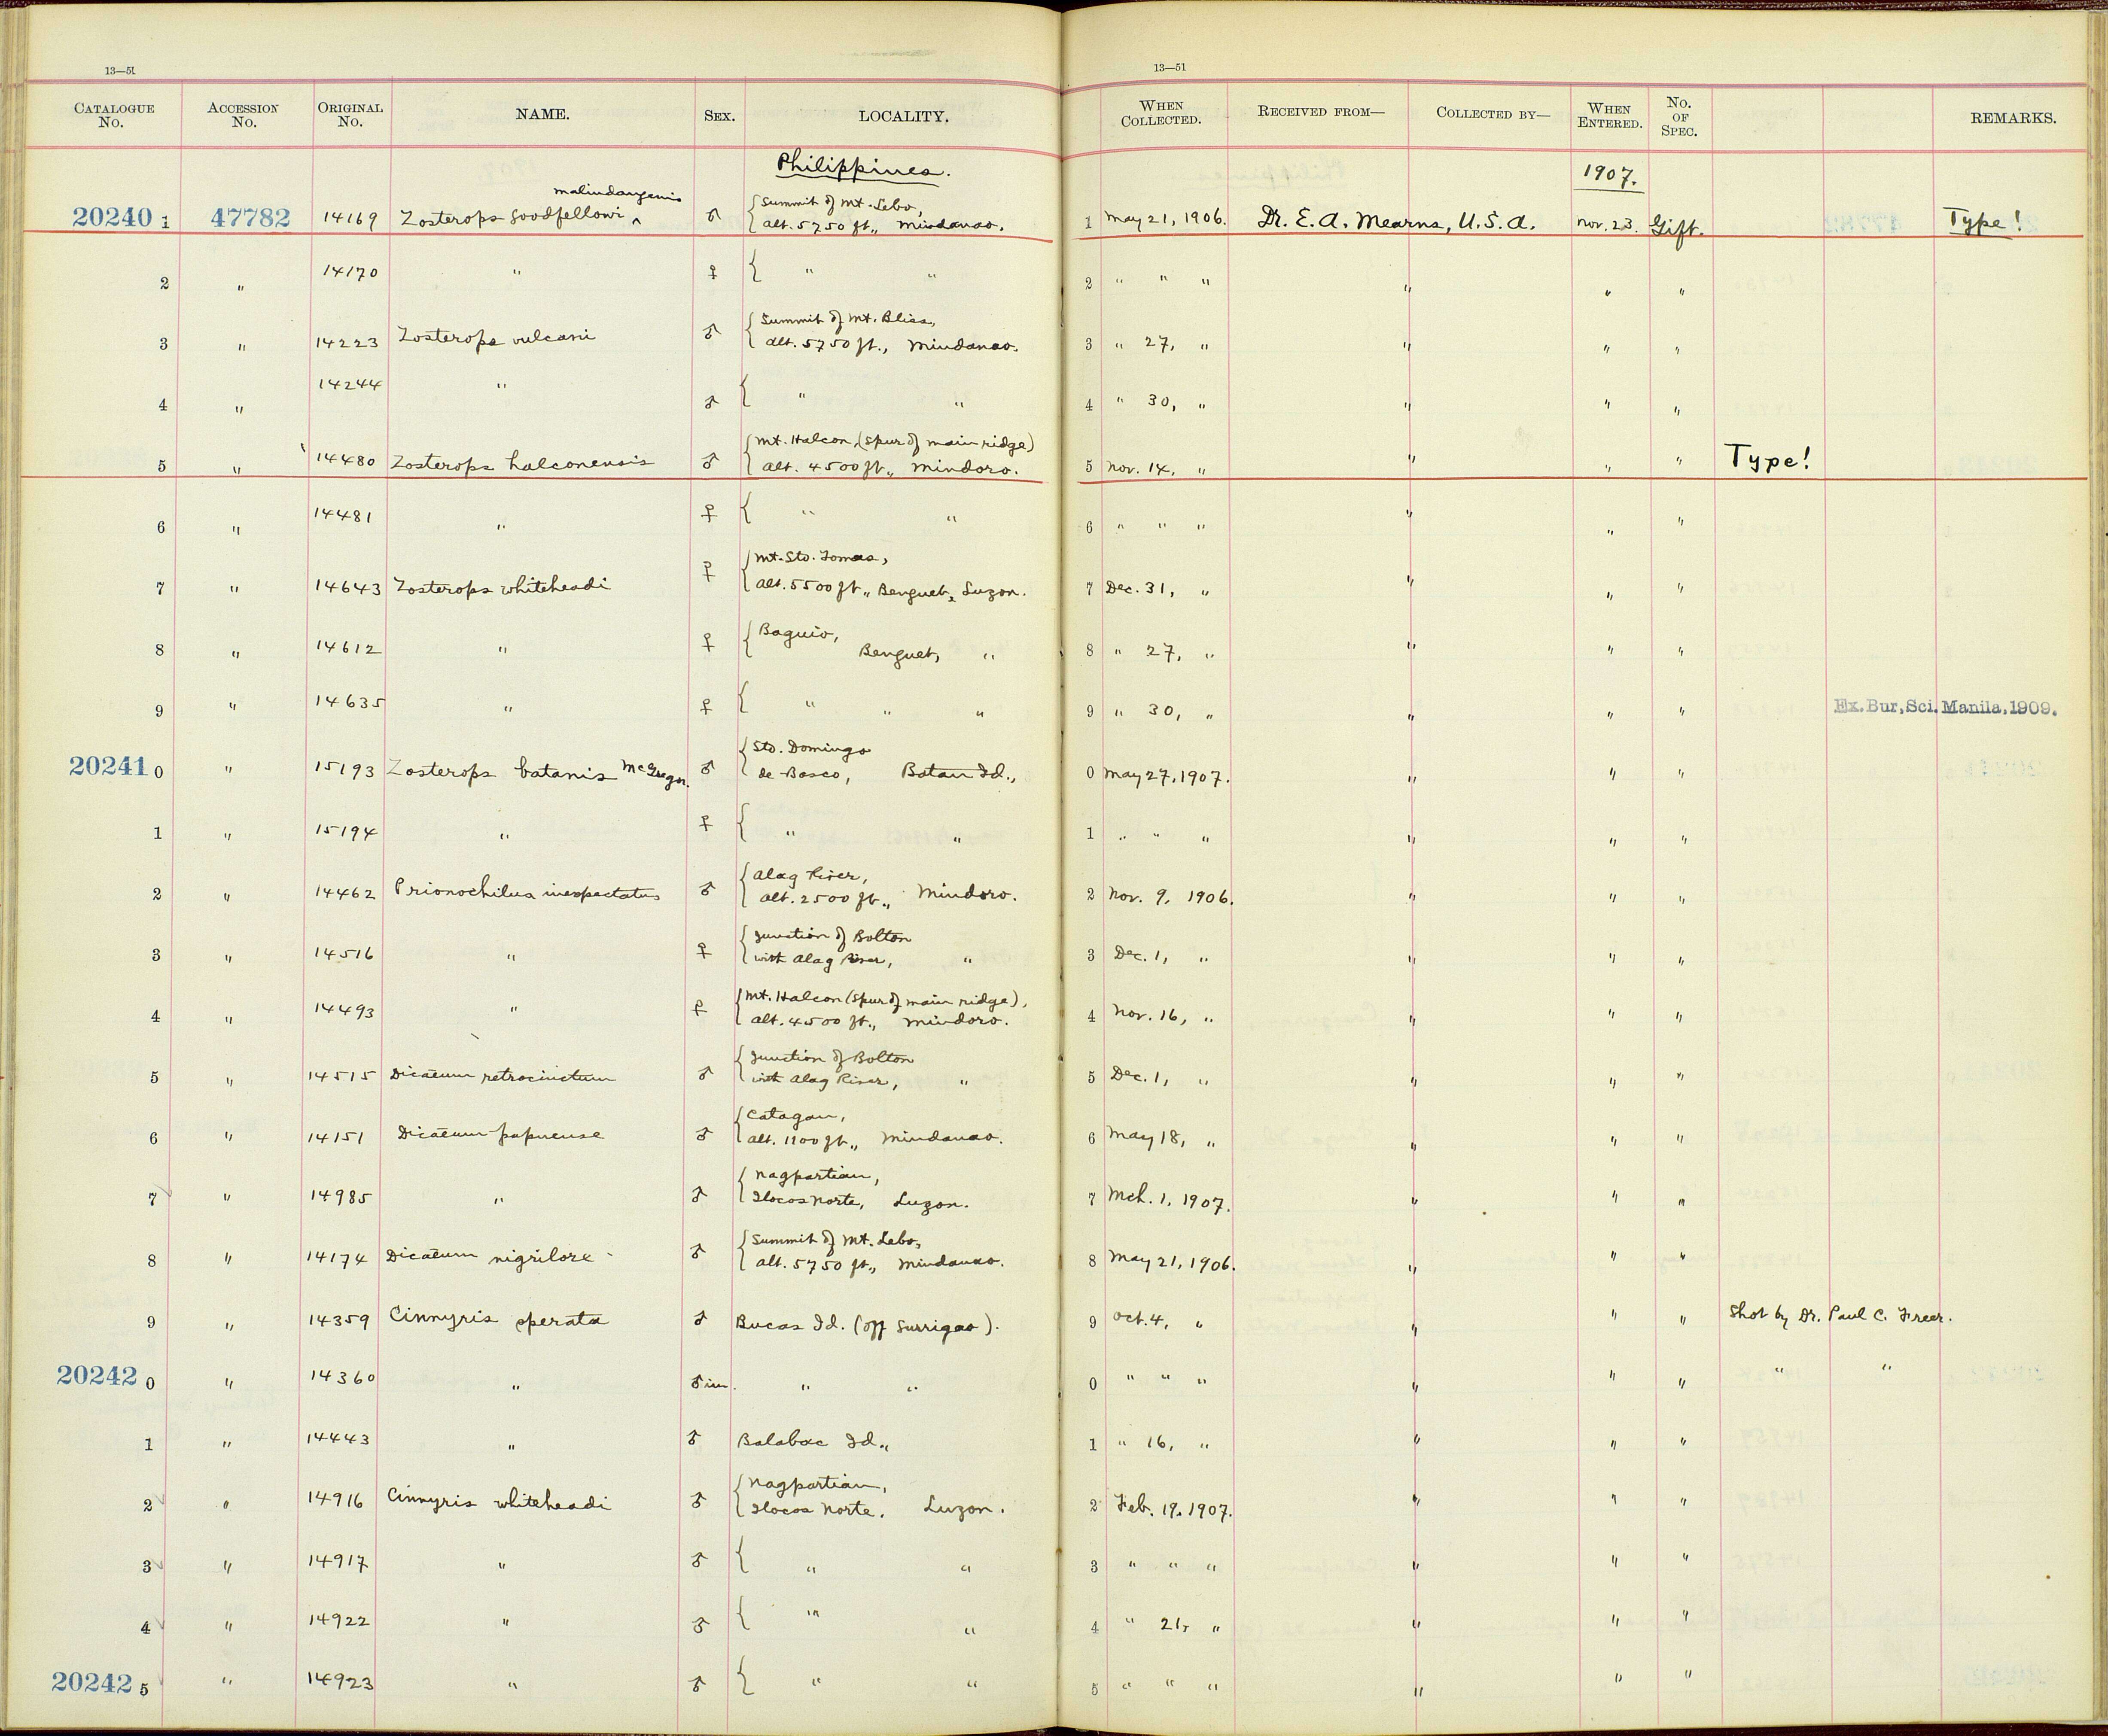 13—51
13—51
CATALOGUE No. ACCESSION No. ORIGINAL No. NAME. SEX. LOCALITY. WHEN COLLECTED. RECEIVED FROM— COLLECTED BY— WHEN ENTERED. No. OF SPEC. REMARKS.
Philippines. 1907.
malindangensis
20240 1 47782 14169 Zosterops goodfellowi ^ ♂ { Summit of Mt. Lebo, alt. 5750 ft., Mindanao. 1 May 21, 1906. Dr. E. A. Mearns, U.S.A. Nov. 23. Gift. Type!
2 " 14170 " ♀ { " " 2 " " " " " "
3 " 14223 Zosterops vulcani ♂ { Summit of Mt. Bliss, alt. 5750 ft., Mindanao. 3 " 27, " " " "
4 " 14244 " ♂ { " " 4 " 30, " " " "
5 " 14480 Zosterops halconensis ♂ { Mt. Halcon, (spur of main ridge) alt. 4500 ft., Mindoro. 5 Nov. 14, " " " " Type!
6 " 14481 " ♀ { " " 6 " " " " " "
7 " 14643 Zosterops whiteheadi ♀ { Mt. Sto. Tomas, alt. 5500 ft., Benguet, Luzon. 7 Dec. 31, " " " "
8 " 14612 " ♀ { Baguio, Benguet, " 8 " 27, " " " "
9 " 14635 " ♀ { " " " 9 " 30, " " " " Ex. Bur. Sci. Manila, 1909.
20241 0 " 15193 Zosterops batanis McGregor. ♂ { Sto. Domingo de Basco, Batan Id., 0 May 27, 1907. " " "
1 " 15194 " ♀ { " " 1 " " " " " "
2 " 14462 Prionochilus inexpectatus ♂ { Alag River, alt. 2500 ft., Mindoro. 2 Nov. 9, 1906. " " "
3 " 14516 " ♀ { Junction of Bolton with Alag River, " 3 Dec. 1, " " " "
4 " 14493 " ♀ { Mt. Halcon (spur of main ridge), alt. 4500 ft., Mindoro. 4 Nov. 16, " " " "
5 " 14515 Dicaeum retrocinctum ♂ { Junction of Bolton with Alag River, " 5 Dec. 1, " " " "
6 " 14151 Dicaeum papuense ♂ { Catagan, alt. 1100 ft., Mindanao. 6 May 18, " " " "
7 " 14985 " ♂ { Nagpartian, Ilocos Norte, Luzon. 7 Mch. 1, 1907. " " "
8 " 14174 Dicaeum nigrilore ♂ { Summit of Mt. Lebo, alt. 5750 ft., Mindanao. 8 May 21, 1906. " " "
9 " 14359 Cinnyris sperata ♂ Bucas Id. (off Surrigao). 9 Oct. 4, " " " " Shot by Dr. Paul C. Freer.
20242 0 " 14360 " ♂ im. " " 0 " " " " " " " "
1 " 14443 " ♂ Balabac Id., 1 " 16, " " " "
2 " 14916 Cinnyris whiteheadi ♂ { Nagpartian, Ilocos Norte. Luzon. 2 Feb. 19, 1907. " " "
3 " 14917 " ♂ { " " 3 " " " " " "
4 " 14922 " ♂ { " " 4 " 21, " " " "
20242 5 " 14923 " ♂ { " " 5 " " " " " "